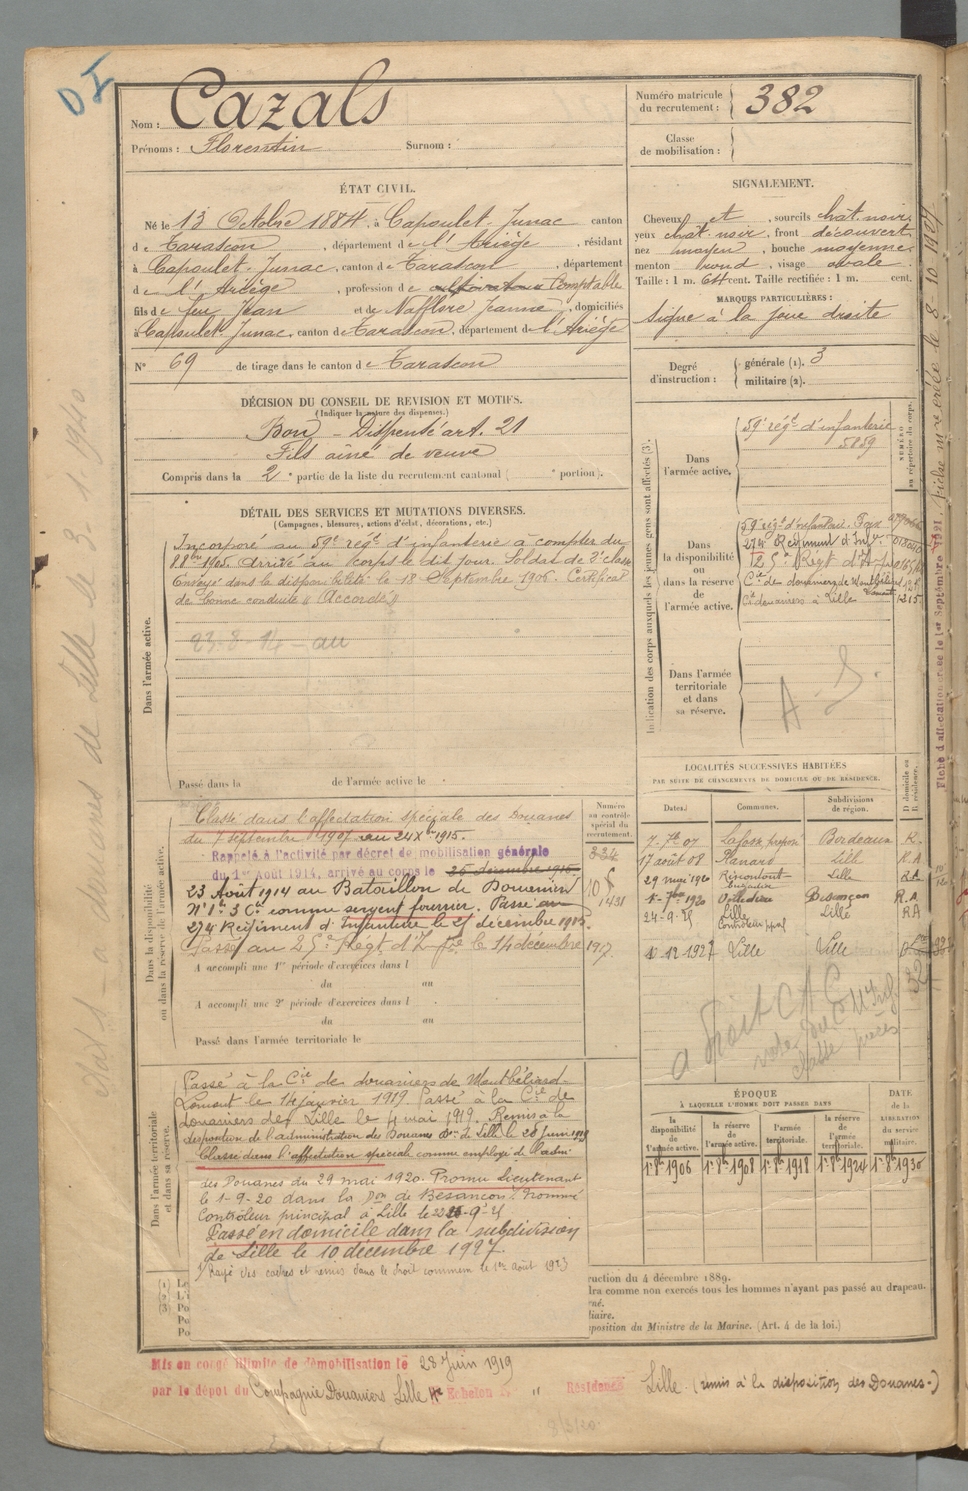 D I
Nom : Cazals
Prénoms : Florentin Surnom :
Numéro matricule
du recrutement : 382
Classe
de mobilisation :
ÉTAT CIVIL.
Né le 13 Octobre 1884, à Capoulet-Junac canton
de Tarascon, département de l'Ariège, résidant
à Capoulet-Junac, canton de Tarascon, département
de l'Ariège, profession de Comptable
fils de feu Jean et de Nafflore Jeanne, domiciliés
à Capoulet Junac, canton de Tarascon, département de l'Ariège
N° 69 de tirage dans le canton de Tarascon
SIGNALEMENT.
Cheveux et , sourcils chât. noir,
yeux chât. noir, front découvert
nez moyen, bouche moyenne
menton rond, visage ovale.
Taille : 1 m. 64 cent. Taille rectifiée : 1 m. cent.
MARQUES PARTICULIÈRES :
signe à la joue droite
Degré
d'instruction :
générale (1). 3
militaire (2).
DÉCISION DU CONSEIL DE REVISION ET MOTIFS.
(Indiquer la nature des dispenses.)
Bon - Dispensé art. 21
Fils aîné de veuve
Compris dans la 2e partie de la liste du recrutement cantonal ( e portion).
DÉTAIL DES SERVICES ET MUTATIONS DIVERSES.
(Campagnes, blessures, actions d'éclat, décorations, etc.)
Dans l'armée active.
Incorporé au 59e régt d'infanterie à compter du
8bre 1905. arrivé au corps le dit jour. Soldat de 2e classe
Envoyé dans la disponibilité le 18 Septembre 1906. Certificat
de bonne conduite "Accordé"
23-8-14 - au
Passé dans la de l'armée active le
Indication des corps auxquels les jeunes gens sont affectés (3).
NUMÉRO
au répertoire du corps.
Dans
l'armée active.
59e régt d'infanterie
5859
Dans
la disponibilité
ou
dans la réserve
de
l'armée active.
59e régt d'infanterie. Foix
274e Régiment d'Infie
Cie de douaniers de Montbéliard
Cie douaniers à Lille
Dans l'armée
territoriale
et dans
sa réserve.
A. S.
LOCALITÉS SUCCESSIVES HABITÉES
PAR SUITE DE CHANGEMENTS DE DOMICILE OU DE RÉSIDENCE.
Dates. Communes. Subdivisions
de région. D domicile ou
R résidence.
7-7bre 07 Bordeaux R.
17 août 08 Lille R.A
29 mai 1920 Lille RA
1er-7bre 1920 Besançon R.A
24-9-25 Lille
Contrôleur ppal Lille RA
1-12-1927 Lille Lille
Dans la disponibilité
ou dans la réserve de l'armée active.
Numéro
au contrôle
spécial du
recrutement.
334
Classé dans l'affectation spéciale des Douanes
du 7 septembre 1907 au 24 Xbre 1915.
Rappelé à l'activité par décret de mobilisation générale
du 1er Août 1914, arrivé au corps le 25 décembre 1915
23 Août 1914 au Bataillon de Douaniers
N° 1e 3 Cie comme sergent fourrier. Passé au
274e Régiment d'Infanterie le 25 décembre 1915.
Passé au 25e Régt d'Infie le 14 décembre 1917.
A accompli une 1re période d'exercices dans l
du au
A accompli une 2e période d'exercices dans l
du au
Passé dans l'armée territoriale le
Dans l'armée territoriale
et dans sa réserve.
Passé à la Cie de douaniers de Montbéliard-
Lomont le 14 janvier 1919. Passé à la Cie de
douaniers de Lille le 4 mai 1919. Remis à la
disposition de l'administration des Douanes Don de Lille le 28 Juin 1919
Classé dans l'affectation spéciale comme employé de l'admin
des Douanes du 29 mai 1920. Promu Lieutenant
le 1-9-20 dans la Don de Besançon. Nommé
Contrôleur principal à Lille le 9-25
Passé en domicile dans la subdivision
de Lille le 10 décembre 1927.
Rayé des cadres et remis dans le droit commun le 1er Août 1923
ÉPOQUE
À LAQUELLE L'HOMME DOIT PASSER DANS
DATE
de la
LIBÉRATION
du service
militaire.
la
disponibilité
de
l'armée active. la réserve
de
l'armée active. l'armée
territoriale. la réserve
de
l'armée
territoriale.
1er 8bre 1906 1er 8bre 1908 1er 8bre 1918 1er 8bre 1924 1er 8bre 1930
ruction du 4 décembre 1889.
dra comme non exercés tous les hommes n'ayant pas passé au drapeau.
position du Ministre de la Marine. (Art. 4 de la loi.)
Mis en congé illimité de démobilisation le 28 Juin 1919
par le dépôt du Compagnie Douaniers Lille Echelon " Résidence Lille. (remis à la disposition des Douanes-)